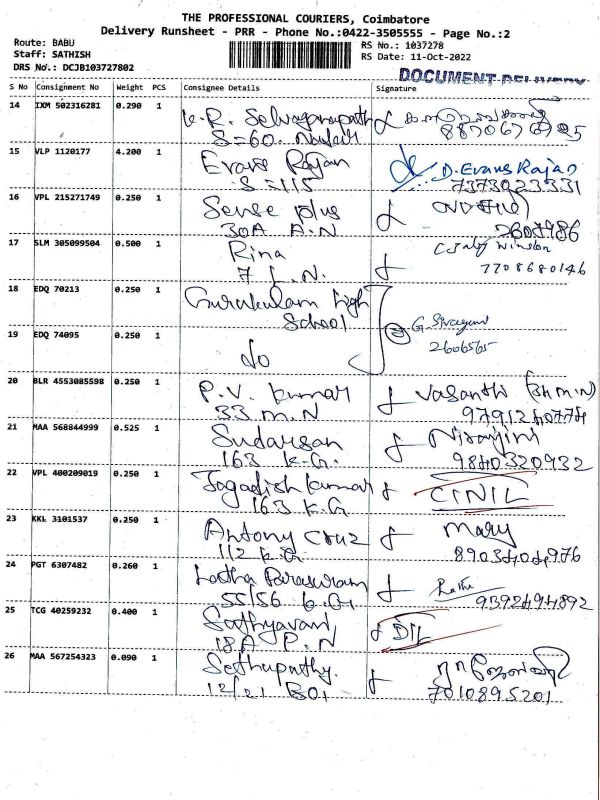 THE PROFESSIONAL COURIERS, Coimbatore
Delivery Runsheet - PRR - Phone No.:0422-3505555 - Page No.:2
Route: BABU
RS No.: 1037278
Staff: SATHISH
RS Date: 11-Oct-2022
DRS No.: DCJB103727802
DOCUMENT DELIVERY
S No Consignment No Weight PCS Consignee Details Signature
14 IXM 502316281 0.290 1
S=60.
15 VLP 1120177 4.200 1 Evans Rajan D. Evans Rajan
S=115 7373023331
16 VPL 215271749 0.250 1 Sense plus
30A A.N 2607986
17 SLM 305099504 0.500 1 Rina
7 L.N. 7708680146
18 EDQ 70213 0.250 1 Gurukulam High
School
G. Sivagami
19 EDQ 74095 0.250 1 do 2606565
20 BLR 4553085598 0.250 1 P.V. Kumar Vasanthi
33 M.N 9791240774
21 MAA 568844999 0.525 1 Sudarsan Niranjini
163 K.G. 9840320932
22 VPL 400209019 0.250 1 Jagadish Kumar CINIL
163 K.G
23 KKL 3101537 0.250 1 Antony Cruz Mary
112 K.G 8903404976
24 PGT 6307482 0.260 1 Latha Parasuram Latha
55/56 K.G. 9392494892
25 TCG 40259232 0.400 1 Sathyavani DIL
18A P.N
26 MAA 567254323 0.090 1 Sethupathy.
12/21 7010895201